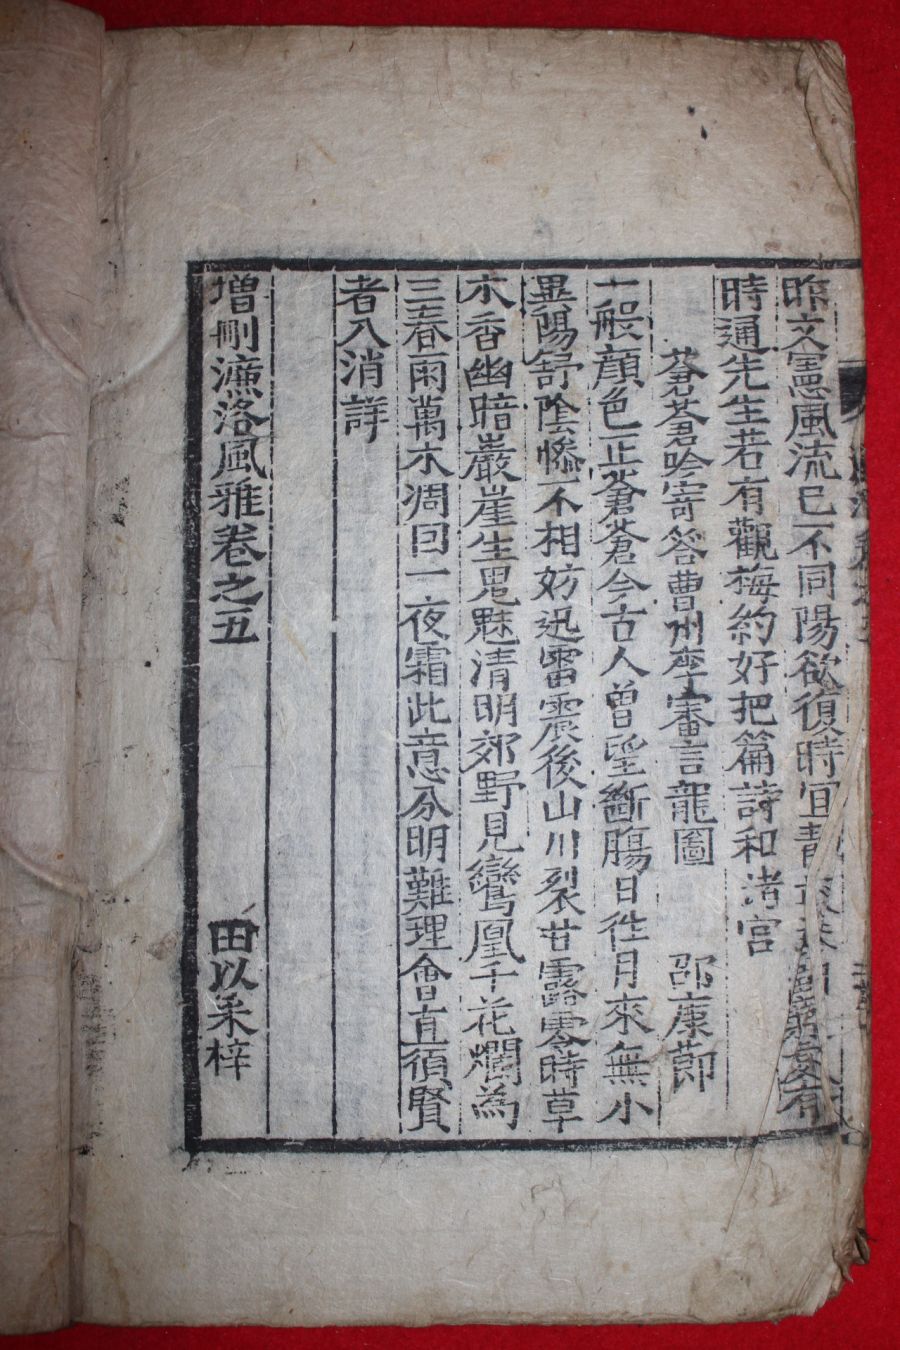 昨文憲風流已不同陽欲復時宜有
時通先生若有觀梅約好把篇詩和渚宮
蒼蒼吟寄答曹州李審言龍圖 邵康節
一般顔色正蒼蒼今古人曾望斷腸日徃月來無小
異陽舒陰慘不相妨迅雷震後山川裂甘露零時草
木香幽暗巖崖生鬼魅清明郊野見鸞凰千花爛為
三春雨萬木凋回一夜霜此意分明難理會直須賢
者入消詳
增刪濂洛風雅卷之五 田以采梓